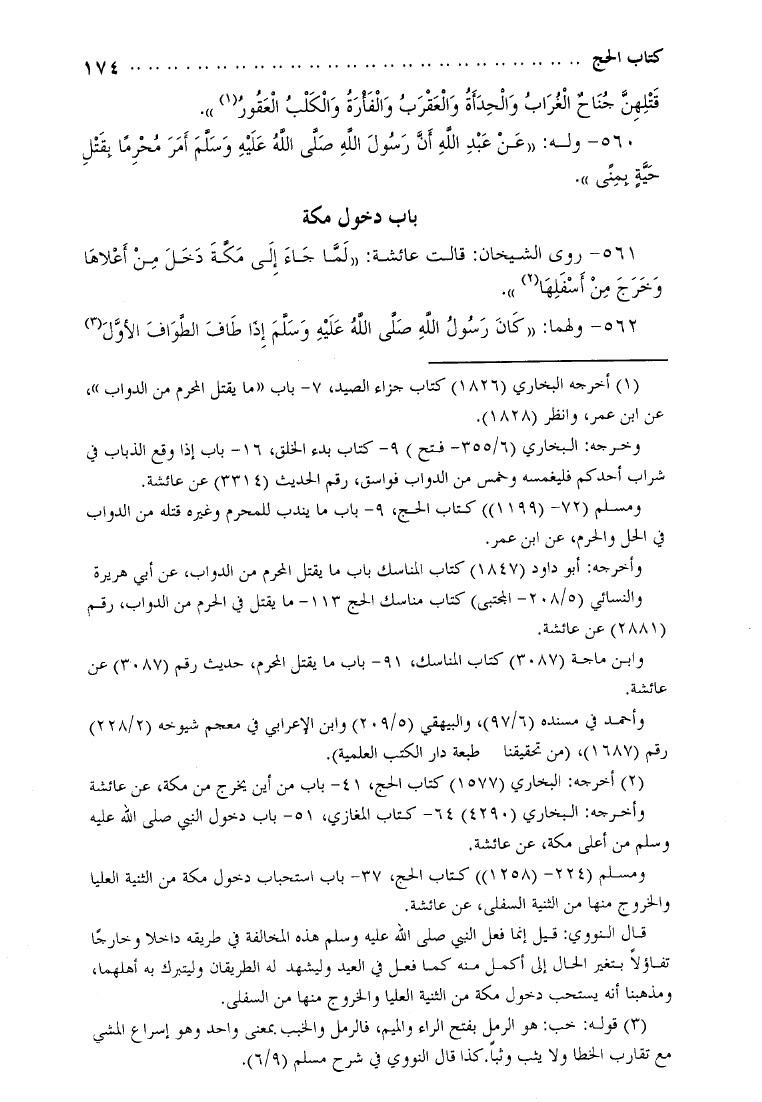 كتاب الحج .................................................. ١٧٤
قَتْلِهِنَّ جُنَاحٌ الْغُرَابُ وَالْحِدَأَةُ وَالْعَقْرَبُ وَالْفَأْرَةُ وَالْكَلْبُ الْعَقُورُ(١)».
٥٦٠- ولـه: «عَـنْ عَبْدِ اللَّهِ أَنَّ رَسُولَ اللَّهِ صَلَّى اللَّهُ عَلَيْهِ وَسَلَّمَ أَمَرَ مُحْرِمًا بِقَتْلِ
حَيَّةٍ بِمِنًى».
باب دخول مكة
٥٦١- روى الشـيخان: قالـت عائشـة: «لَمَّـا جَـاءَ إِلَـى مَكَّـةَ دَخَـلَ مِـنْ أَعْلاهَا
وَخَرَجَ مِنْ أَسْفَلِهَا(٢)».
٥٦٢- ولهما: «كَانَ رَسُولُ اللَّهِ صَلَّى اللَّهُ عَلَيْهِ وَسَلَّمَ إِذَا طَافَ الطَّوَافَ الأوَّلَ(٣)
(١) أخرجه البخاري (١٨٢٦) كتاب جزاء الصيد، ٧- باب «ما يقتل المحرم من الدواب»،
عن ابن عمر، وانظر (١٨٢٨).
وخـرجه: الـبخاري (٣٥٥/٦- فـتح) ٩- كتاب بدء الخلق، ١٦- باب إذا وقع الذباب في
شراب أحدكم فليغمسه وخمس من الدواب فواسق، رقم الحديث (٣٣١٤) عن عائشة.
ومسـلم (٧٢- (١١٩٩)) كـتاب الحـج، ٩- باب ما يندب للمحرم وغيره قتله من الدواب
في الحل والحرم، عن ابن عمر.
وأخرجه: أبو داود (١٨٤٧) كتاب المناسك باب ما يقتل المحرم من الدواب، عن أبي هريرة
والنسائي (٢٠٨/٥- المجتبى) كتاب مناسك الحج ١١٣- ما يقتل في الحرم من الدواب، رقـم
(٢٨٨١) عن عائشة.
وابـن ماجـة (٣٠٨٧) كتاب المناسك، ٩١- باب ما يقتل المحرم، حديث رقم (٣٠٨٧) عن
عائشة.
وأحمـد في مسنده (٩٧/٦)، والبيهقي (٢٠٩/٥) وابن الإعرابي في معجم شيوخه (٢٢٨/٢)
رقم (١٦٨٧)، (من تحقيقنا طبعة دار الكتب العلمية).
(٢) أخرجه: البخاري (١٥٧٧) كتاب الحج، ٤١- باب من أين يخرج من مكة، عن عائشة
وأخـرجه: الـبخاري (٤٢٩٠) ٦٤- كـتاب المغازي، ٥١- باب دخول النبي صلى الله عليه
وسلم من أعلى مكة، عن عائشة.
ومسـلم (٢٢٤- (١٢٥٨)) كـتاب الحج، ٣٧- باب استحباب دخول مكة من الثنية العليا
والخروج منها من الثنية السفلى، عن عائشة.
قـال الـنووي: قـيل إنما فعل النبي صلى الله عليه وسلم هذه المخالفة في طريقه داخلا وخارجًا
تفـاؤلاً بـتغير الحـال إلى أكمـل مـنه كمـا فعـل في العيد وليشهد له الطريقان وليتبرك به أهلهما،
ومذهبنا أنه يستحب دخول مكة من الثنية العليا والخروج منها من السفلى.
(٣) قولـه: خب: هو الرمل بفتح الراء والميم، فالرمل والخبب بمعنى واحد وهو إسراع المشي
مع تقارب الخطا ولا يثب وثباً. كذا قال النووي في شرح مسلم (٦/٩).